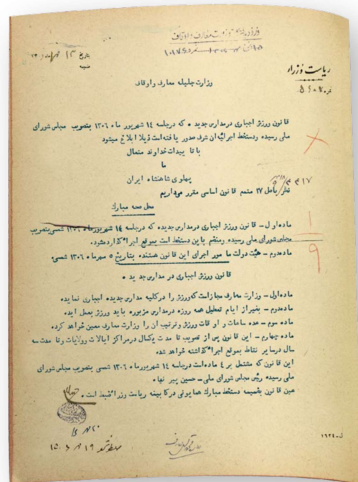 ریاست وزراء
وزارت جلیله معارف و اوقاف
قانون ورزش اجباری در مدارس جدیده که در جلسه ۱۴ شهریور ماه ۱۳۰۶ بتصویب مجلس شورای
ملی رسیده و دستخط اجرای آن شرف صدور یافته است ذیلا ابلاغ میشود
با تأییدات خداوند متعال
ما
پهلوی شاهنشاه ایران
نظر باصل ۲۷ متمم قانون اساسی مقرر میداریم
محل صحه مبارک
ماده اول - قانون ورزش اجباری در مدارس جدیده که در جلسه ۱۴ شهریور ماه ۱۳۰۶ شمسی بتصویب
مجلس شورای ملی رسیده و منضم باین دستخط است بموقع اجرا گذارده شود.
ماده دوم - هیئت دولت مأمور اجرای این قانون هستند بتاریخ ۵ مهر ماه ۱۳۰۶ شمسی.
قانون ورزش اجباری در مدارس جدیده
ماده اول - وزارت معارف مجاز است که ورزش را در کلیه مدارس جدیده اجباری نماید
ماده دوم - بغیر از ایام تعطیل همه روزه در مدارس مزبوره باید ورزش بعمل آید
ماده سوم - عده ساعات و اوقات ورزش و ترتیب آن را وزارت معارف معین خواهد کرد
ماده چهارم - این قانون پس از تصویب تا مدت یکسال در مراکز ایالات و ولایات و تا مدت سه
سال در سایر نقاط بموقع اجرا گذاشته خواهد شد
این قانون که مشتمل بر ۴ ماده است در جلسه ۱۴ شهریور ماه ۱۳۰۶ شمسی بتصویب مجلس شورای
ملی رسیده رئیس مجلس شورای ملی - حسین پیرنیا
عین قانون بضمیمه دستخط مبارک همایونی در کابینه ریاست وزراء ضبط است.